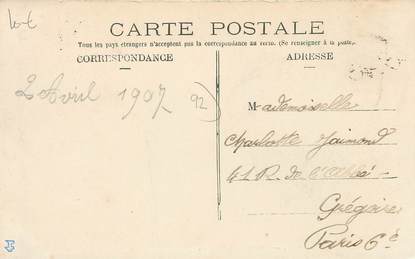 Lot
CARTE POSTALE
Tous les pays étrangers n'acceptent pas la correspondance au verso. (Se renseigner à la poste).
CORRESPONDANCE
ADRESSE
2 Avril 1907
92
Mademoiselle
Charlotte Jaimond
41 R. de l'Abbé
Grégoire
Paris 6e